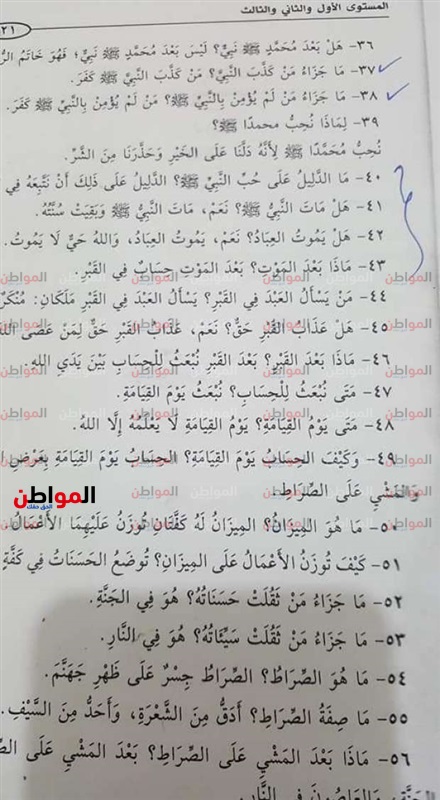 المستوى الأول والثاني والثالث
٢١
٣٦- هَلْ بَعْدَ مُحَمَّدٍ ﷺ نَبِيٌّ؟ لَيْسَ بَعْدَ مُحَمَّدٍ ﷺ نَبِيٌّ؛ فَهُوَ خَاتَمُ
٣٧- مَا جَزَاءُ مَنْ كَذَّبَ النَّبِيَّ؟ مَنْ كَذَّبَ النَّبِيَّ ﷺ كَفَرَ.
٣٨- مَا جَزَاءُ مَنْ لَمْ يُؤْمِنْ بِالنَّبِيِّ ﷺ؟ مَنْ لَمْ يُؤْمِنْ بِالنَّبِيِّ ﷺ كَفَرَ.
٣٩- لِمَاذَا نُحِبُّ محمدًا ﷺ؟
نُحِبُّ مُحَمَّدًا ﷺ لِأَنَّهُ دَلَّنَا عَلَى الْخَيْرِ وَحَذَّرَنَا مِنَ الشَّرِّ.
٤٠- مَا الدَّلِيلُ عَلَى حُبِّ النَّبِيِّ ﷺ؟ الدَّلِيلُ عَلَى ذَلِكَ أَنْ نَتَّبِعَهُ فِي
٤١- هَلْ مَاتَ النَّبِيُّ ﷺ؟ نَعَمْ، مَاتَ النَّبِيُّ ﷺ وَبَقِيَتْ سُنَّتُهُ.
٤٢- هَلْ يَمُوتُ العِبَادُ؟ نَعَمْ، يَمُوتُ العِبَادُ، وَاللهُ حَيٌّ لَا يَمُوتُ.
٤٣- مَاذَا بَعْدَ الْمَوْتِ؟ بَعْدَ الْمَوْتِ حِسَابٌ فِي القَبْرِ.
٤٤- مَنْ يَسْأَلُ العَبْدَ فِي القَبْرِ؟ يَسْأَلُ العَبْدَ فِي القَبْرِ مَلَكَانِ: مُنْكَرٌ
٤٥- هَلْ عَذَابُ القَبْرِ حَقٌّ؟ نَعَمْ، عَذَابُ القَبْرِ حَقٌّ لِمَنْ عَصَى
٤٦- مَاذَا بَعْدَ القَبْرِ؟ بَعْدَ القَبْرِ نُبْعَثُ لِلْحِسَابِ بَيْنَ يَدَيِ اللهِ.
٤٧- مَتَى نُبْعَثُ لِلْحِسَابِ؟ نُبْعَثُ يَوْمَ القِيَامَةِ.
٤٨- مَتَى يَوْمُ القِيَامَةِ؟ يَوْمُ القِيَامَةِ لَا يَعْلَمُهُ إِلَّا اللهُ.
٤٩- وَكَيْفَ الحِسَابُ يَوْمَ القِيَامَةِ؟ الحِسَابُ يَوْمَ القِيَامَةِ بِعَرْضِ
وَالمَشْيِ عَلَى الصِّرَاطِ.
المواطن
الحق معك
٥٠- مَا هُوَ المِيزَانُ؟ المِيزَانُ لَهُ كَفَّتَانِ تُوزَنُ عَلَيْهِمَا الأَعْمَالُ
٥١- كَيْفَ تُوزَنُ الأَعْمَالُ عَلَى المِيزَانِ؟ تُوضَعُ الحَسَنَاتُ فِي كَفَّةٍ
٥٢- مَا جَزَاءُ مَنْ ثَقُلَتْ حَسَنَاتُهُ؟ هُوَ فِي الجَنَّةِ.
٥٣- مَا جَزَاءُ مَنْ ثَقُلَتْ سَيِّئَاتُهُ؟ هُوَ فِي النَّارِ.
٥٤- مَا هُوَ الصِّرَاطُ؟ الصِّرَاطُ جِسْرٌ عَلَى ظَهْرِ جَهَنَّمَ.
٥٥- مَا صِفَةُ الصِّرَاطِ؟ أَدَقُّ مِنَ الشَّعْرَةِ، وَأَحَدُّ مِنَ السَّيْفِ.
٥٦- مَاذَا بَعْدَ المَشْيِ عَلَى الصِّرَاطِ؟ بَعْدَ المَشْيِ عَلَى
الجَنَّةَ، وَالعَاصُونَ فِي النَّارِ.